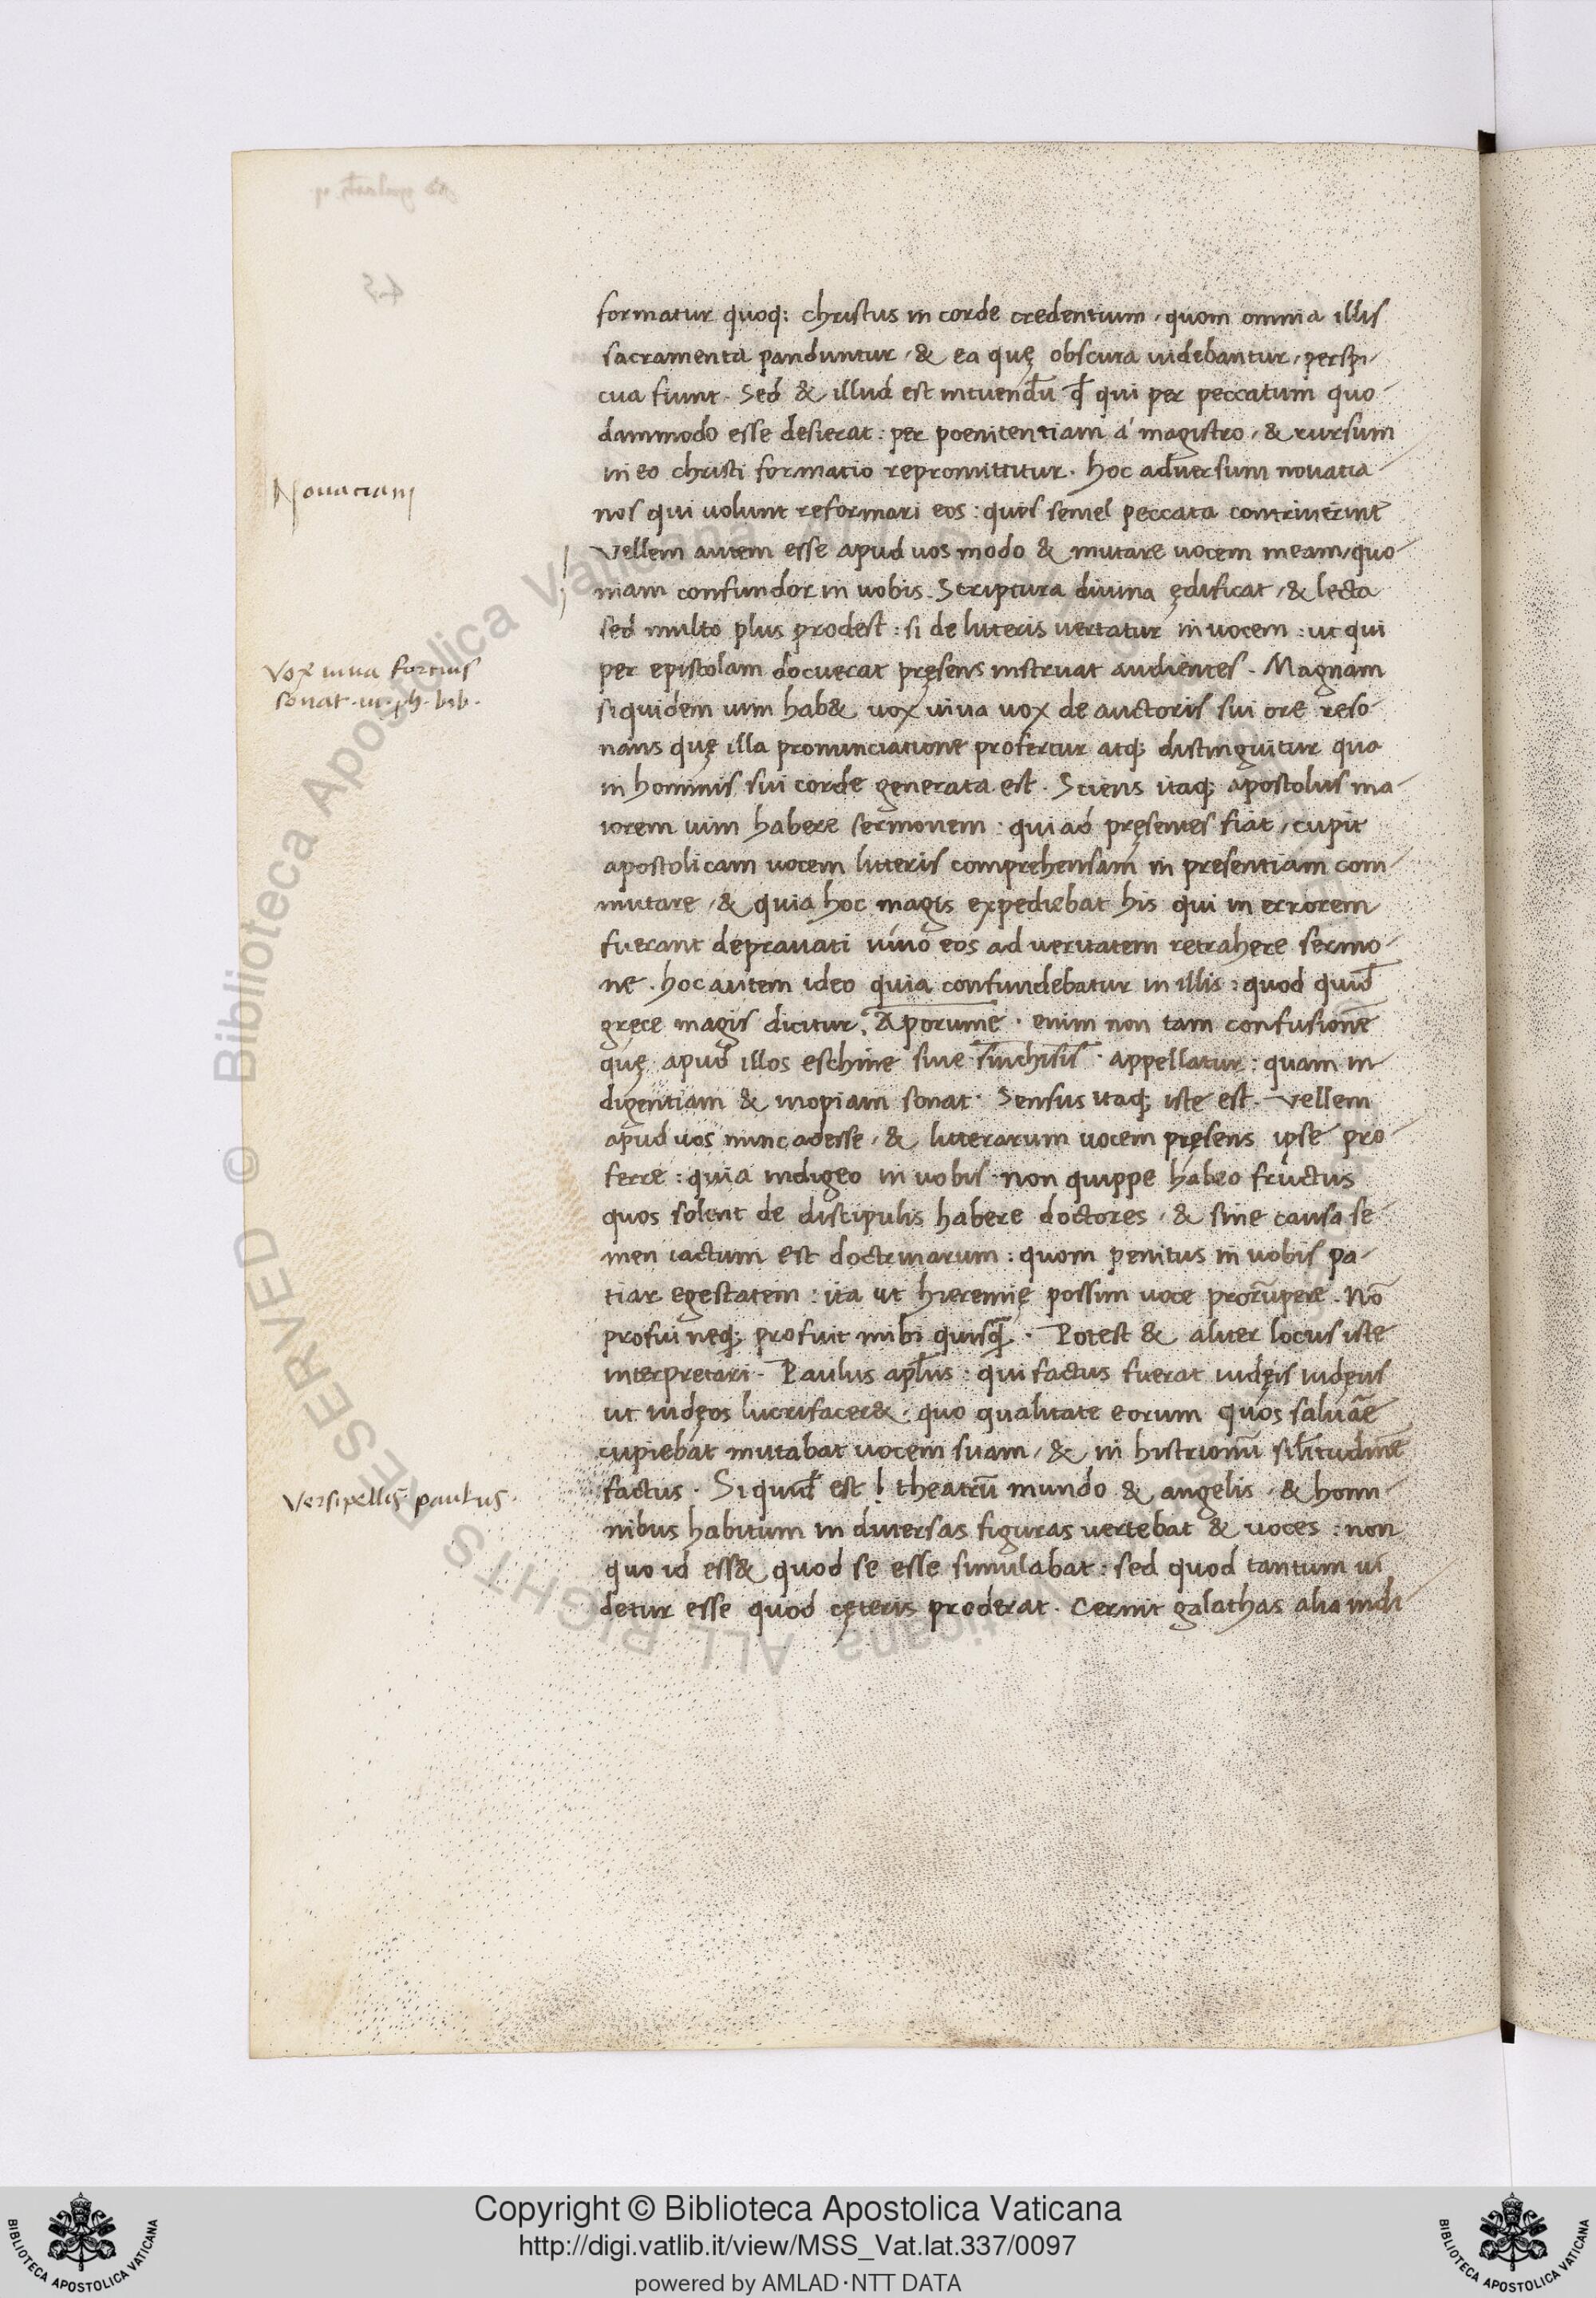 formatur quoq; christus in corde credentium, quom omnia illis
sacramenta panduntur, & ea quę obscura uidebantur, perspi-
cua fiunt. Sed & illud est intuendū qđ qui per peccatum quo-
dammodo esse desierat: per poenitentiam á magistro, & rursum
in eo christi formatio repromittitur. hoc aduersum nouatia-
Nouaciani
nos qui uolunt reformari eos: quos semel peccata contriuerint
Vellem autem esse apud uos modo & mutare uocem meam, quo-
niam confundor in uobis. Scriptura diuina ędificat, & lecta
sed multo plus prodest: si de litteris vertatur in vocem: ut qui
Vox uiua forcius
per epistolam docuerat pręsens instruat audientes. Magnam
sonat
siquidem uim hab& uox uiua uox de auctoris sui ore reso-
nans quę illa pronunciatione profertur atq; distinguitur qua
in hominis sui corde generata est. Sciens itaq; apostolus ma-
iorem uim habere sermonem: qui ad pręsentes fiat, cupit
apostolicam uocem litteris comprehensam in presentiam com-
mutare, & quia hoc magis expediebat his qui in errorem
fuerant deprauati uiuo eos ad veritatem retrahere sermo-
ne. hoc autem ideo quia confundebatur in illis: quod quid̄
gręce magis dicitur. Aporume. enim non tam confusionē
quę apud illos eschine siue sinchisis. appellatur: quam in-
digentiam & inopiam sonat. Sensus itaq; iste est. Vellem
apud uos nunc adesse, & litterarum uocem pręsens ipse pro-
ferre: quia indigeo in uobis non quippe habeo fructus
quos solent de discipulis habere doctores, & sine causa se-
men iactum est doctrinarum: quom penitus in uobis pa-
tiar egestatem: ita ut hieremię possim uoce prorūpere. Nō
profui neq; profuit mihi quisq̄. Potest & aliter locus iste
interpretari. Paulus apl̄us: qui factus fuerat iudęis iudęus
ut iudęos lucrifacer& quo qualitate eorum quos saluāe
cupiebat mutabat uocem suam, & in histrionū sil̄itudinē
Versipellis paulus.
factus. Siquid̄ est theatrū mundo & angelis, & homi-
nibus habitum in diuersas figuras vertebat & uoces: non
quo id ess& quod se esse simulabat: sed quod tantum ui
detur esse quod cęteris proderat. Cernit galathas alia indi
45
© Biblioteca Apostolica Vaticana
ALL RIGHTS RESERVED
Copyright © Biblioteca Apostolica Vaticana
http://digi.vatlib.it/view/MSS_Vat.lat.337/0097
powered by AMLAD·NTT DATA
BIBLIOTECA APOSTOLICA VATICANA
BIBLIOTECA APOSTOLICA VATICANA